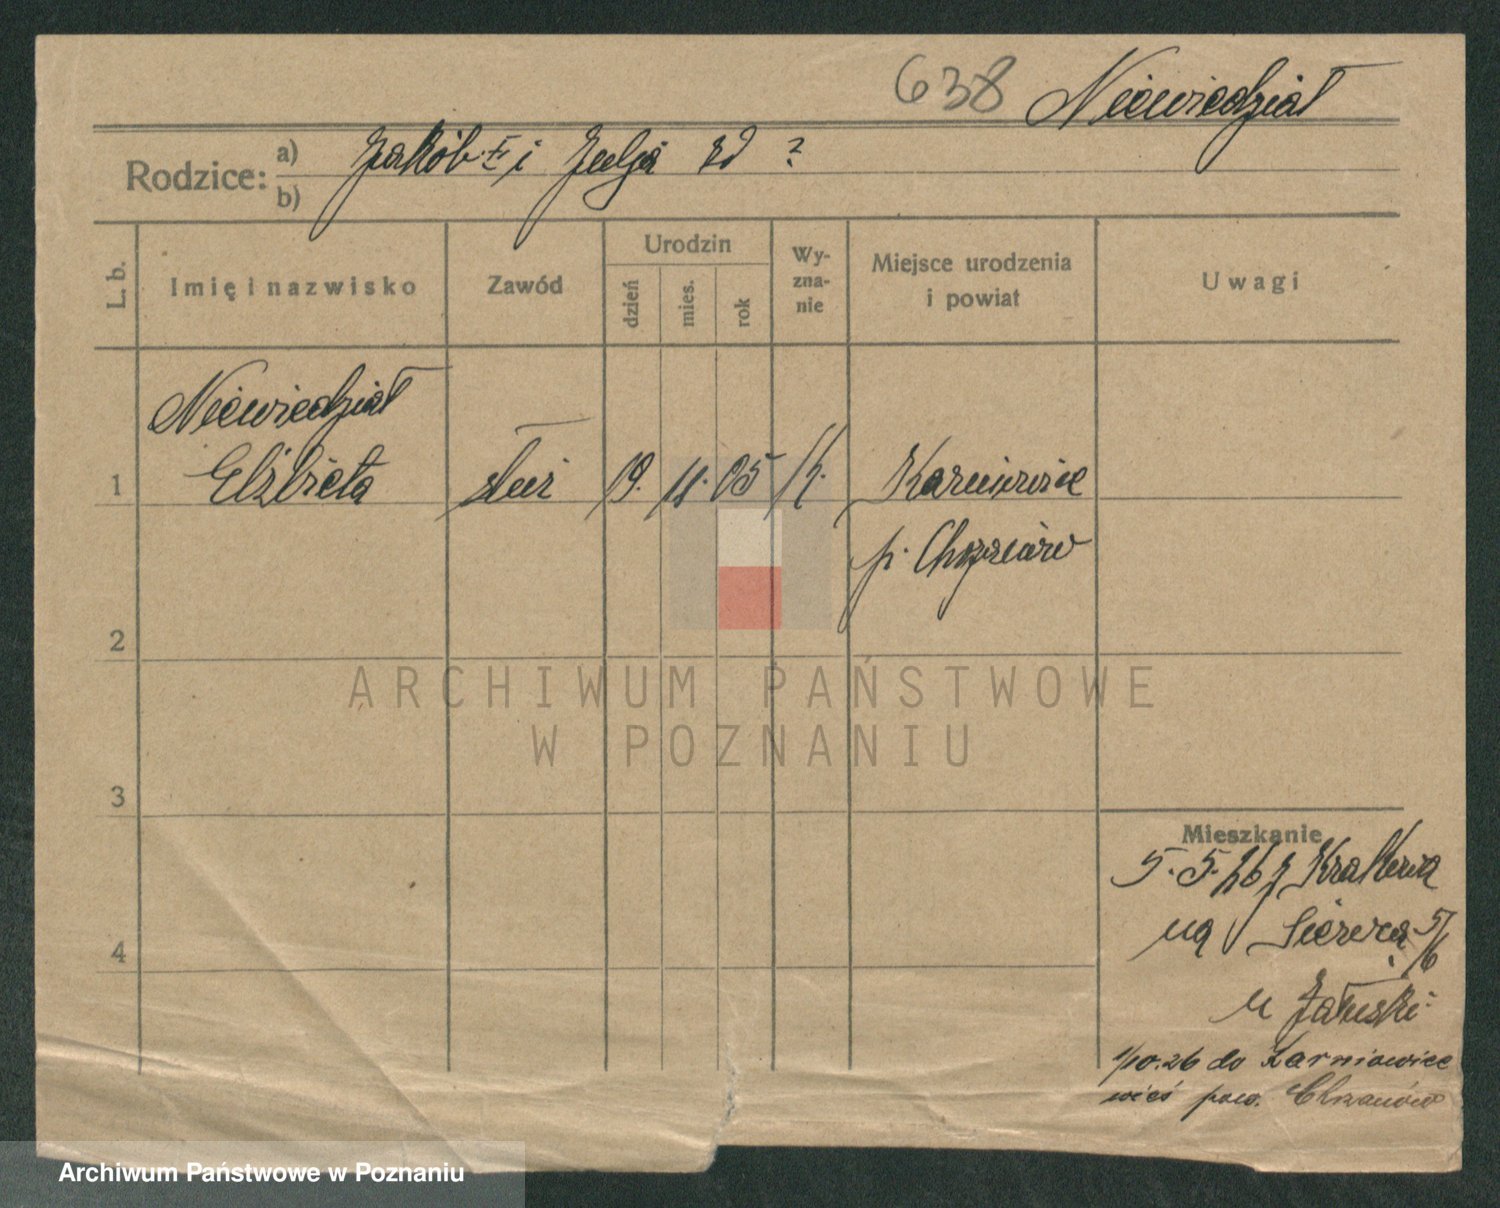 638 Niewiedział
Rodzice: a) Jakób i Julja zd ?
b)
L. b.
Imię i nazwisko
Zawód
Urodzin
dzień
mies.
rok
Wy-
zna-
nie
Miejsce urodzenia
i powiat
Uwagi
Niewiedział
1 Elżbieta służ 19. 11. 05 rk. Karniowice
p. Chrzanów
2
3
4
Mieszkanie
5.5.26 z Krakowa
na 5/6
u Załuski
1/10.26 do Karniowice
wieś pow. Chrzanów
ARCHIWUM PAŃSTWOWE
W POZNANIU
Archiwum Państwowe w Poznaniu